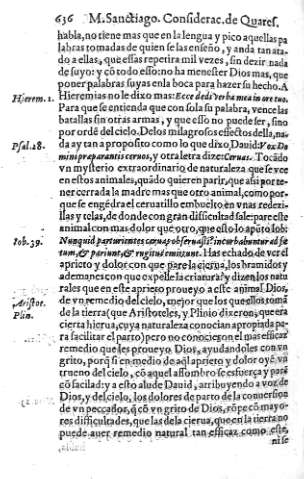 636 M. Sanctiago. Considerac. de Quares.
habla, no tiene mas que en la lengua y pico aquellas pa
labras tomadas de quien se las enseño, y anda tan ata-
do a ellas, que essas repetira mil vezes, sin dezir nada
de suyo: y cō todo esso: no ha menester Dios mas, que
poner palabras suyas en la boca para hazer su hecho. A
Hierem. 1. Hieremias no le dixo mas: Ecce dedi verba mea in ore tuo.
Para que se entienda que con sola su palabra, vence las
batallas sin otras armas, y que esso no puede ser, sino
por ordē del cielo. De los milagrosos effectos della, na
Psal. 28. da ay tan a proposito como lo que dixo, Dauid: Vox Do
mini præparantis ceruos, y otra letra dize: Ceruas. Tocādo
vn mysterio extraordinario de naturaleza que se vee
en estos animales, quādo quieren parir, que assi por te-
ner cerrada la madre mas que otro animal, como por-
que se engēdra el ceruatillo embuelto en vnas redezi-
llas y telas, de donde con gran difficultad sale: pare este
animal con mas dolor que otro, que esto lo apūto Iob:
Iob. 39. Nunquid parturientes ceruas obseruasti? incuruabuntur ad fœ
tum, & pariunt, & rugitus emittunt. Has echado de ver el
aprieto y dolor con que pare la cierua, los bramidos y
ademanes con que expelle la criatura? y dizen los natu
rales que en este aprieto proueyo a este animal Dios,
Aristot. de vn remedio del cielo, mejor que los que ellos toma
Plin. de la tierra (que Aristoteles, y Plinio dixeron, que era
cierta hierua, cuya naturaleza conocian apropiada pa-
ra facilitar el parto) pero no conocieron el mas efficaz
remedio que les proueyo Dios, ayudandoles con vn
grito, porq̄ si en medio de aq̄l aprieto y dolor oyē vn
trueno del cielo, cō aquel assombro se esfuerça y parē
cō facilidad: y a esto alude Dauid, atribuyendo a voz de
Dios, y del cielo, los dolores de parto de la conuersion
de vn peccador, q̄ cō vn grito de Dios, rōpe cō mayo-
res difficultades, que las de la cierua, que en la tierra no
puede auer remedio natural tan efficaz como este,
ni se